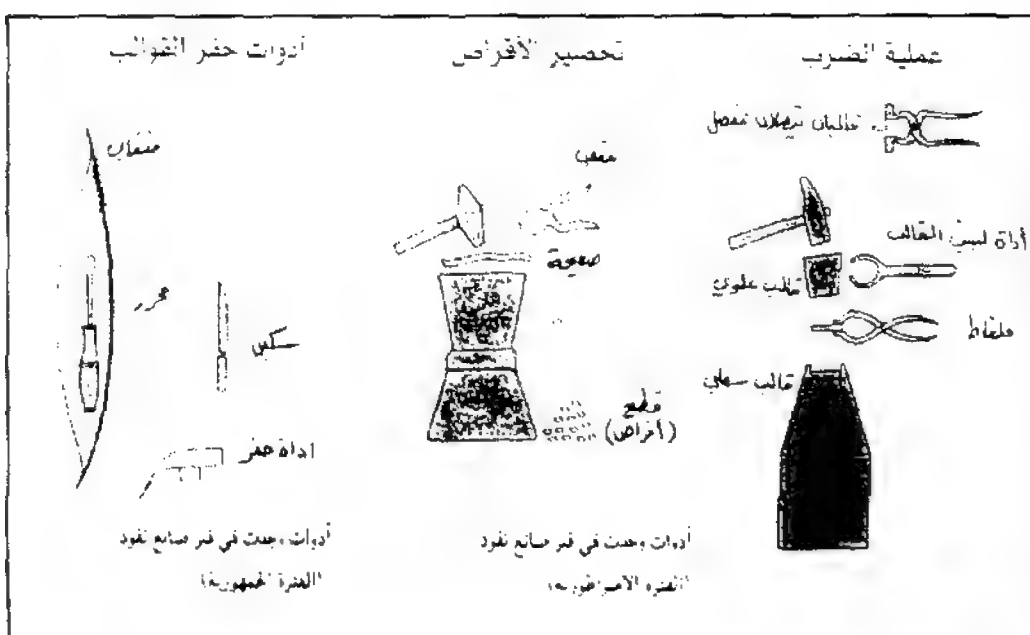 عملية الضرب
قالبان يتصلان بمفصل
أداة لمسك القالب
قالب علوي
ملقاط
قالب سفلي
تحضير الأقراص
مقص
صفيحة
قطع
(أقراص)
أدوات وجدت في قبر صانع نقود
(الفترة الامبراطورية)
أدوات حفر القوالب
سكين
اداة حفر
أدوات وجدت في قبر صانع نقود
(الفترة الجمهورية)